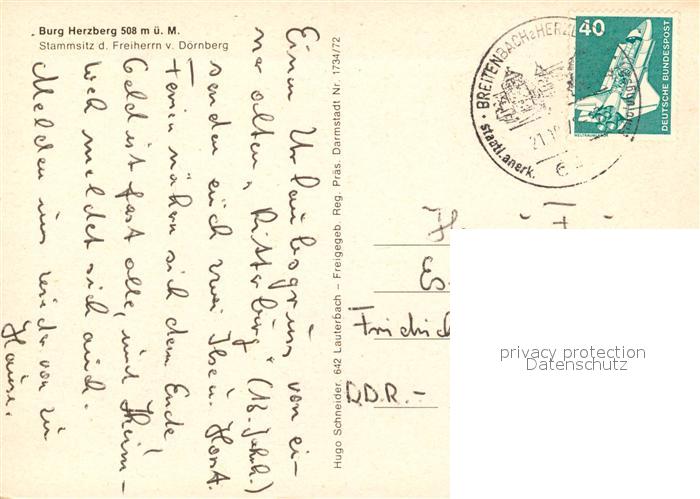 Burg Herzberg 508 m ü. M.
Stammsitz d. Freiherrn v. Dörnberg
Einen Urlaubsgruß von ei-
ner alten „Ritterburg" (16. Jahrh.)
senden euch zwei Ilse u. Horst.
Ferien nähern sich dem Ende
Geld ist fast alle, und Heim-
weh meldet sich auch.
Melden uns wieder von zu
Hause.
Hugo Schneider, 642 Lauterbach – Freigegeb. Reg. Präs. Darmstadt Nr. 1734/72
BREITENBACH a HERZ
staatl. anerk.
40
DEUTSCHE BUNDESPOST
Friedrich
DDR.-
privacy protection
Datenschutz